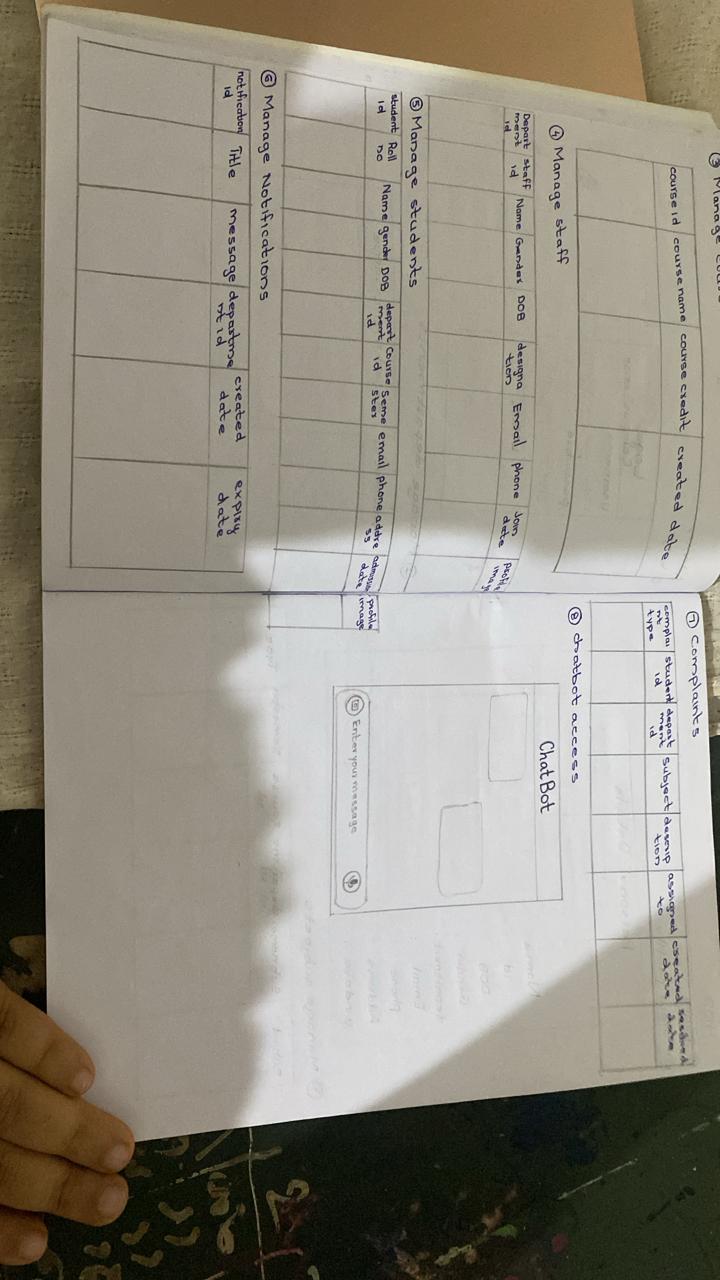 ③ Manage course
course id course name course credit created date
④ Manage staff
Depart ment id staff id Name Gender DOB designa tion Email phone Join date profile image
⑤ Manage students
student id Roll no Name gender DOB depart ment id Course id Seme ster email phone addre ss admission date profile image
⑥ Manage Notifications
notification id Title message departme nt id created date expiry date
⑦ Complaints
complai nt type student id depart ment id subject descrip tion assigned to created date resolved date
⑧ chatbot access
ChatBot
Enter your message